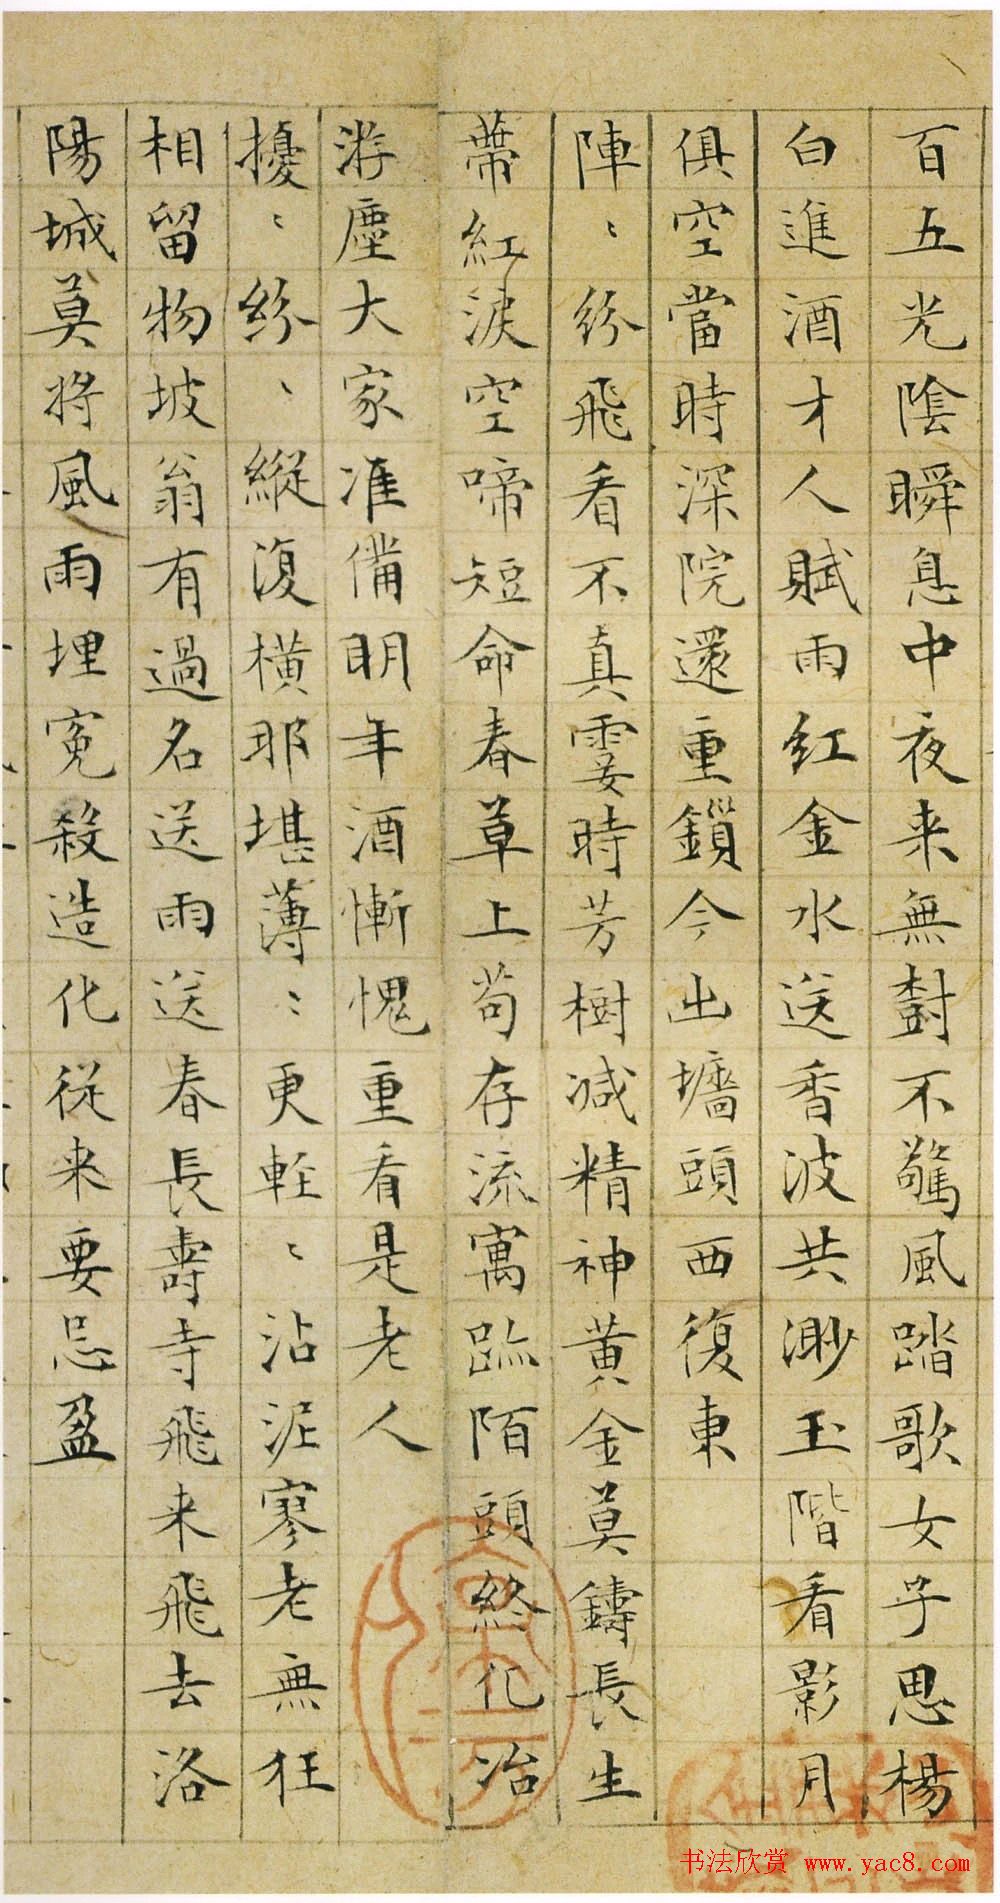 百五光陰瞬息中夜来無樹不驚風踏歌女子思楊
白進酒才人賦雨紅金水送香波共渺玉階看影月
俱空當時深院還重鎖今出墻頭西復東
陣〻紛飛看不真霎時芳樹減精神黄金莫鑄長生
蒂紅淚空啼短命春草上苟存流寓跡陌頭終化冶
游塵大家准備明年酒慚愧重看是老人
擾〻紛〻縱復橫那堪薄〻更輕〻沾泥寥老無狂
相留物坡翁有過名送雨送春長壽寺飛来飛去洛
陽城莫將風雨埋冤殺造化從来要忌盈
书法欣赏 www.yac8.com